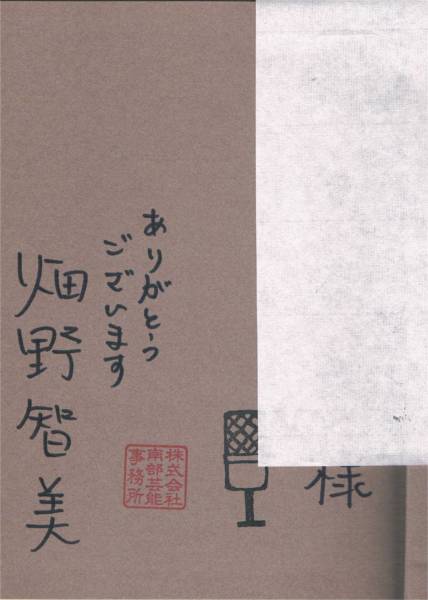 様
ありがとう
ございます
畑野智美
株式会社
南部芸能
事務所